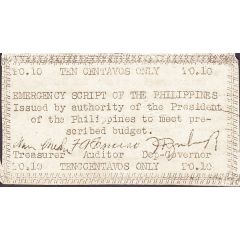 P0.10 TEN CENTAVOS ONLY P0.10
EMERGENCY SCRIPT OF THE PHILIPPINES
Issued by authority of the President
of the Philippines to meet pre-
scribed budget.
Treasurer Auditor Dep-Governor
P0.10 TENCGENTAVOS ONLY P0.10